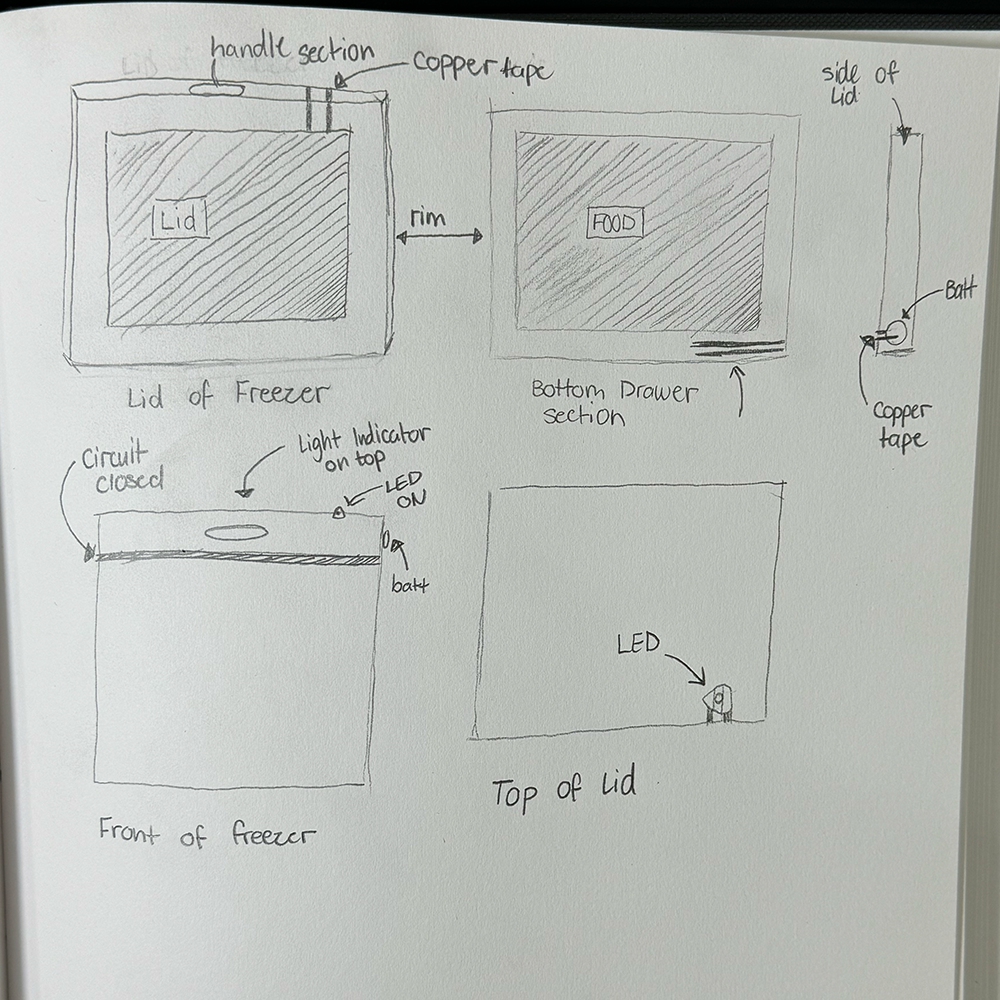 handle section
copper tape
Lid
rim
FOOD
side of
Lid
Batt
Copper
tape
Lid of Freezer
Bottom Drawer
section
Circuit
closed
Light Indicator
on top
LED
ON
batt
Front of freezer
LED
Top of Lid